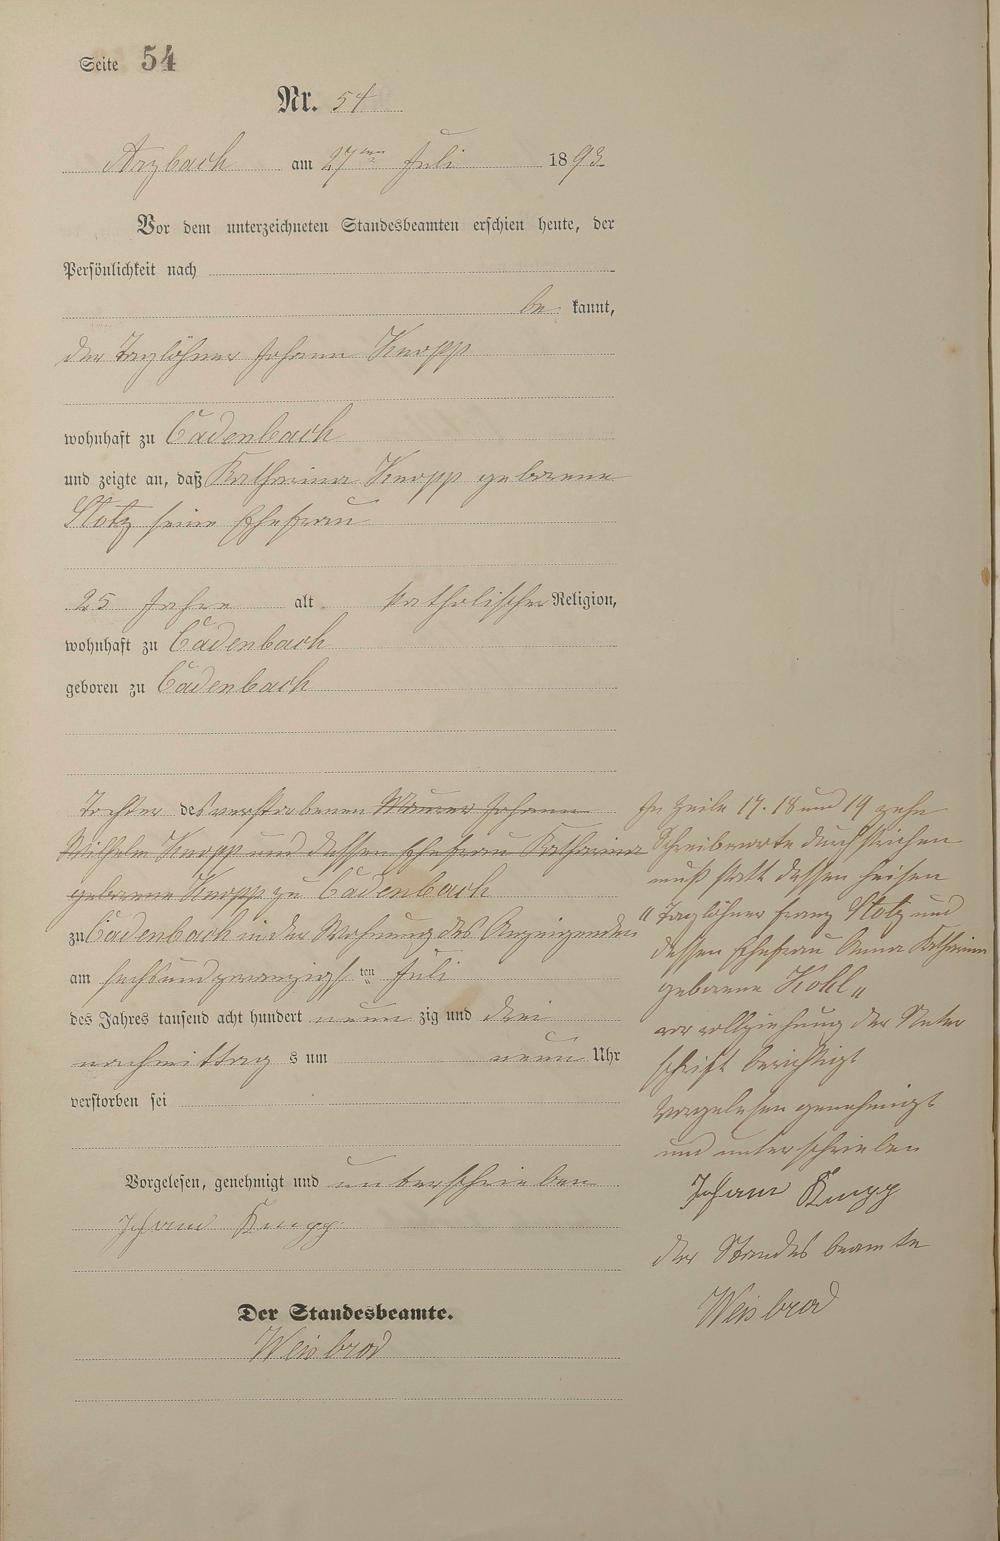 Seite 54
Nr. 54
Arzbach am 27ten Juli 1893
Vor dem unterzeichneten Standesbeamten erschien heute, der
Persönlichkeit nach
be kannt,
der Taglöhner Johann Knopp
wohnhaft zu Cadenbach
und zeigte an, daß Katharina Knopp geborene
Stotz seine Ehefrau
25 Jahre alt katholischer Religion,
wohnhaft zu Cadenbach
geboren zu Cadenbach
Tochter des verstorbenen Maurer Johann
Wilhelm Knopp und dessen Ehefrau Katharina
geborene Knopp zu Cadenbach
zu Cadenbach in der Wohnung des Anzeigenden
am sechsundzwanzigsten Juli
des Jahres tausend acht hundert neun zig und drei
nachmittag s um neun Uhr
verstorben sei
Vorgelesen, genehmigt und unterschrieben
Johann Knopp
Der Standesbeamte.
Weisbrod
In Zeile 17. 18 und 19 zehn
Schreibworte durchstrichen
muß statt dessen heisen
"Taglöhner Franz Stotz und
dessen Ehefrau Anna Katharina
geborene Kohl"
vor vollziehung der Unter
schrift berichtigt
Vorgelesen genehmigt
und unterschrieben
Johann Knopp
der Standesbeamte
Weisbrod